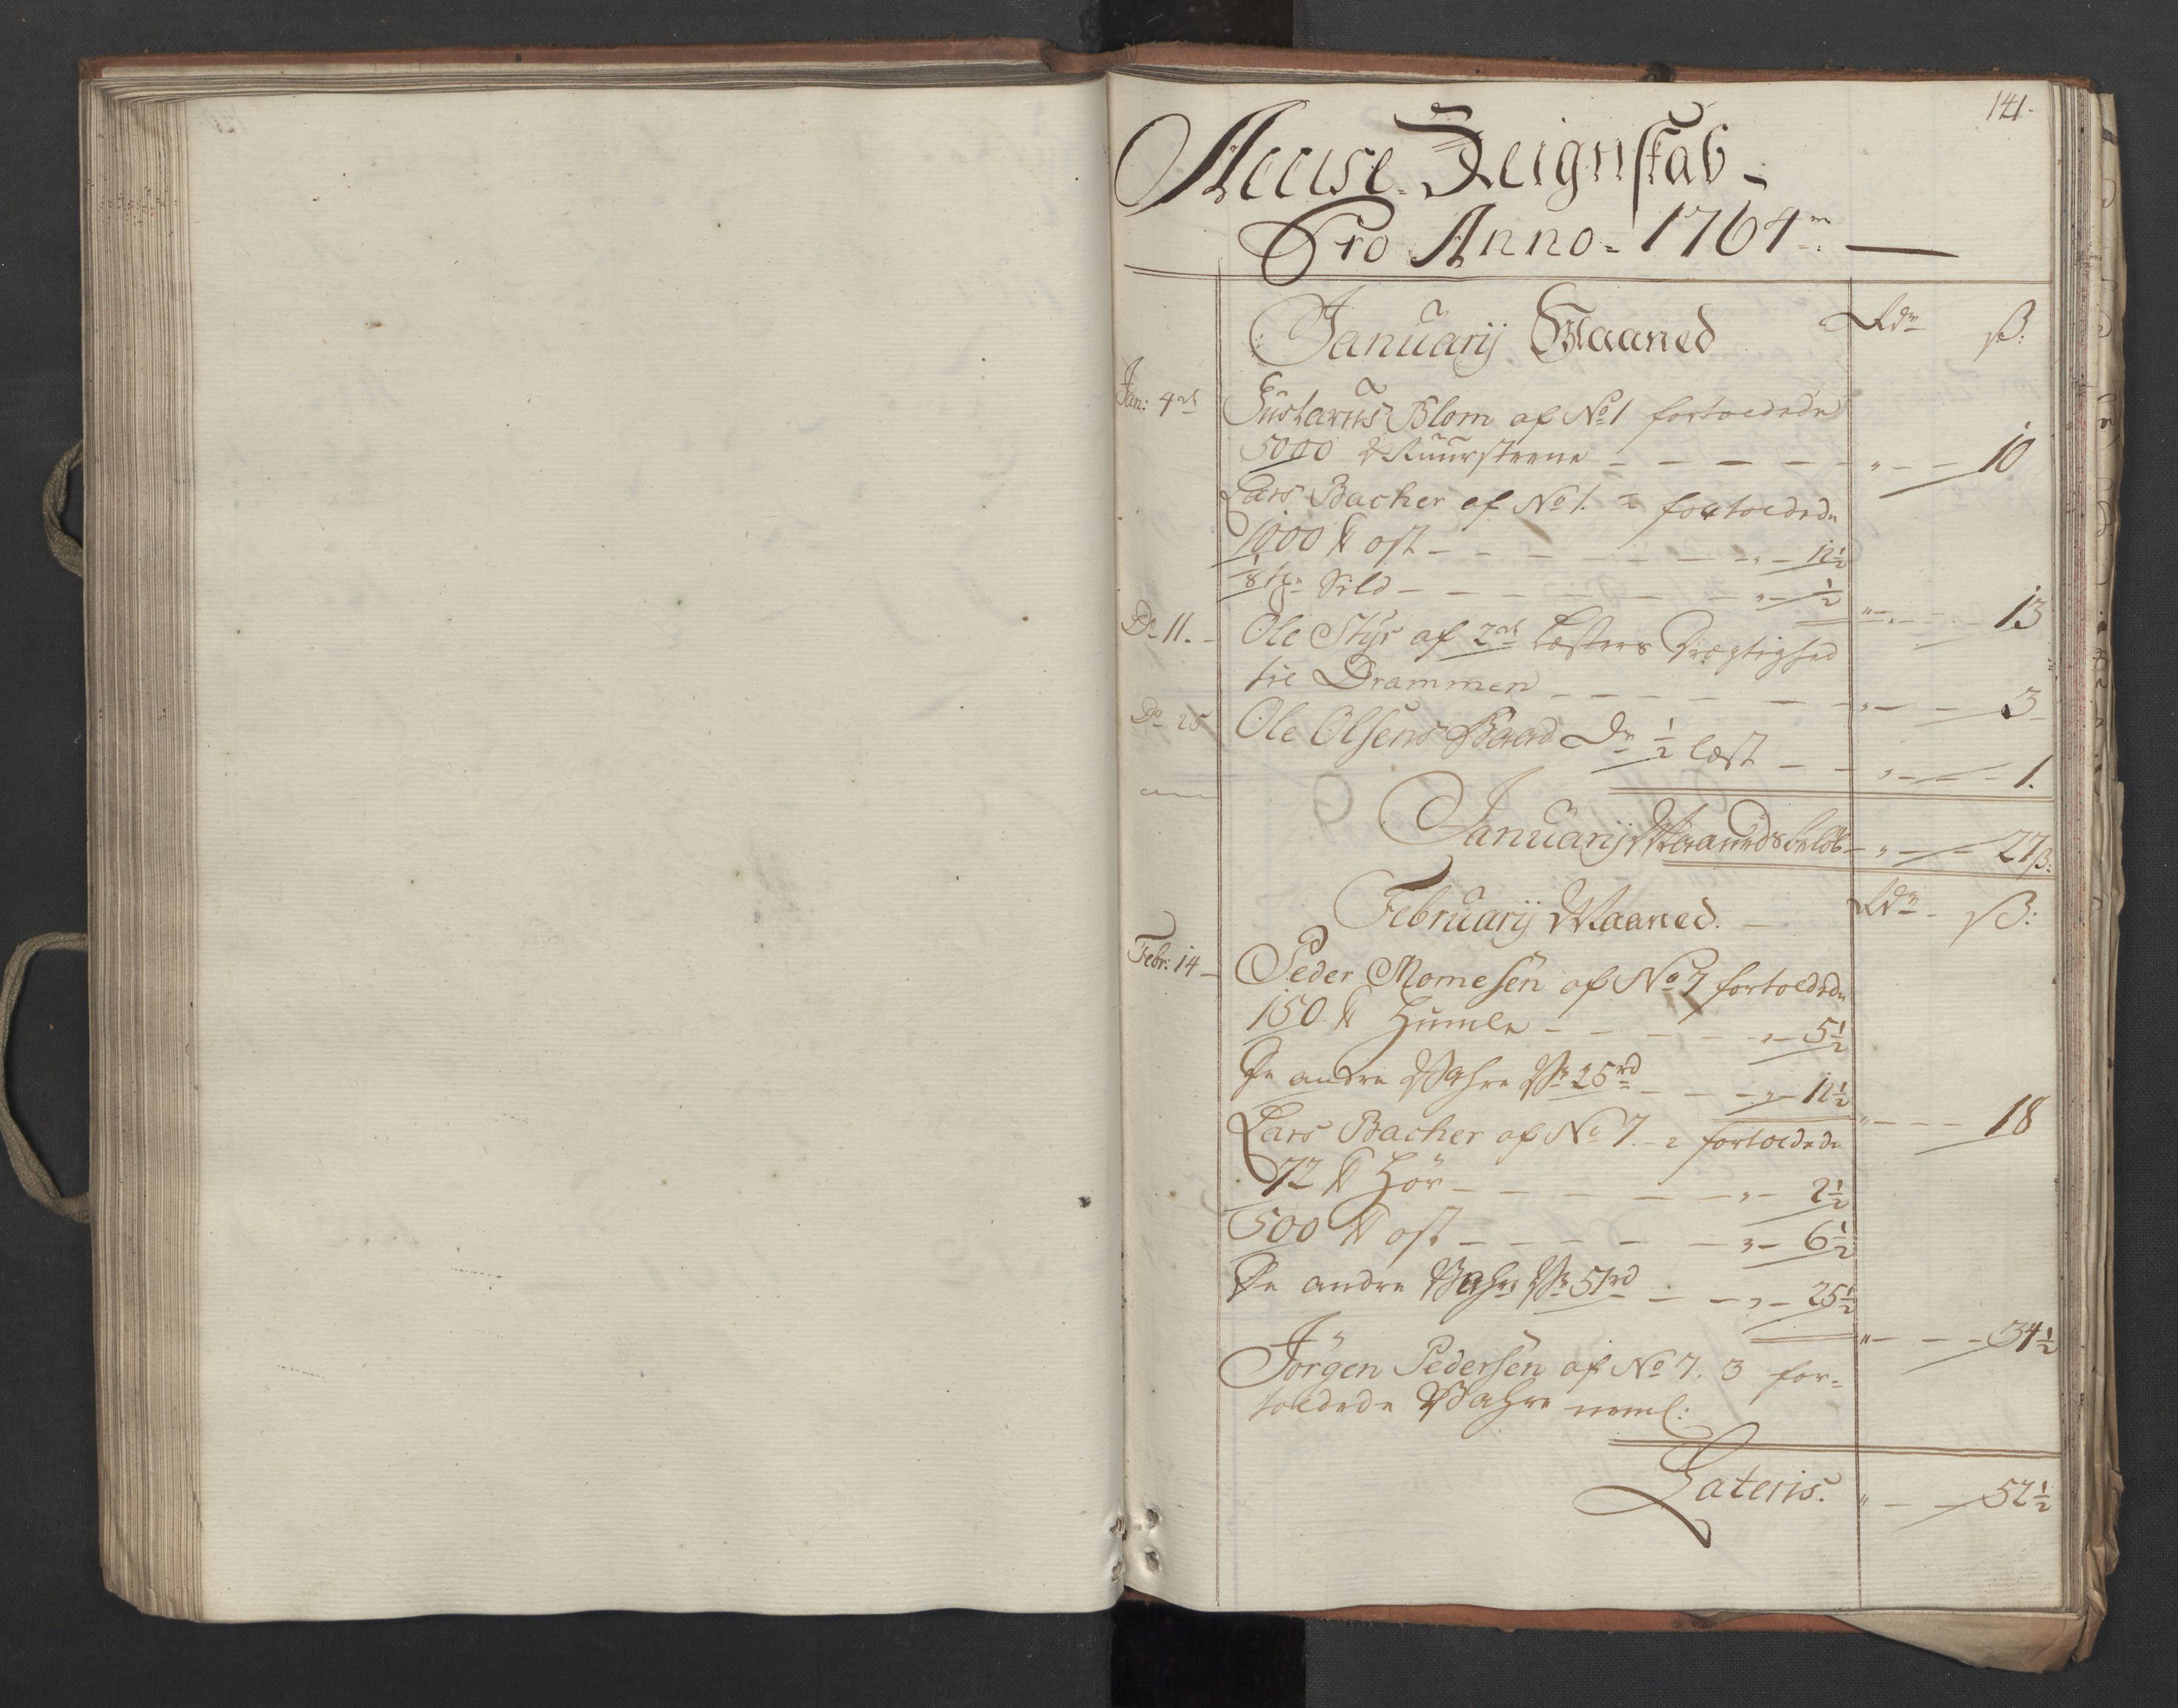 141.
Accise Reignskab
Pro Anno 1764
Januarij Maaned Rdr ß:
Jan: 4de Gustavus Blom af No 1 fortoldede
5000 Muursteene " 10
Lars Bacher af No 1. 2 fortoldede
1000 ℔ ost " 12½
⅛ tr Sild " ½ " 13
Do 11. Ole Styr af 2de Læsters Drægtighed
til Drammen " 3
Do 25 Ole Olsens Baad Dr ½ læst " 1.
Januarij Maaneds beløb " 27 ß:
Februarij Maaned. Rdr ß:
Febr: 14 Peder Momesen af No 7 fortoldede
150 ℔ Humle " 5½
De andre Wahre Wr 25 rd " 12½ " 18
Lars Bacher af No 7. 2 fortoldede
72 ℔ Hör " 2½
500 ℔ ost " 6½
De andre Wahre Wr 51 rd " 25½ " 34½
Jörgen Pedersen af No 7. 3 for=
toldede Wahre neml:
Lateris. " 52½